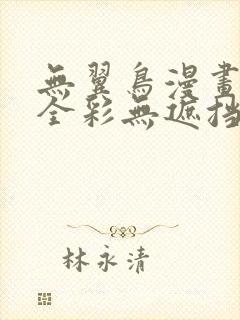 無翼鳥漫畫
全彩無遮挡
林永清